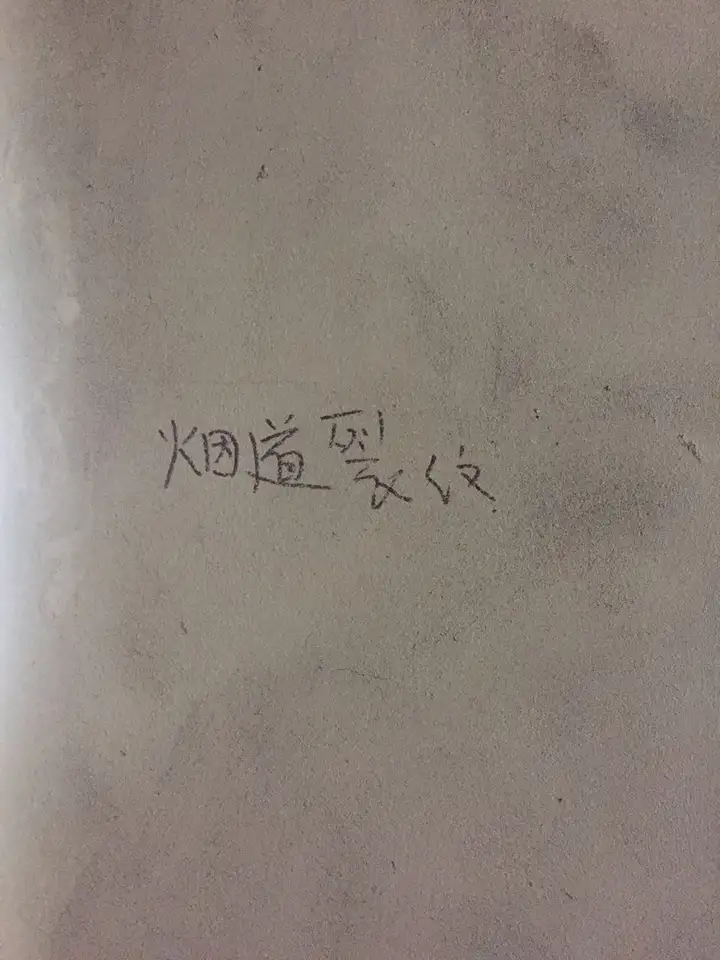 烟道裂纹